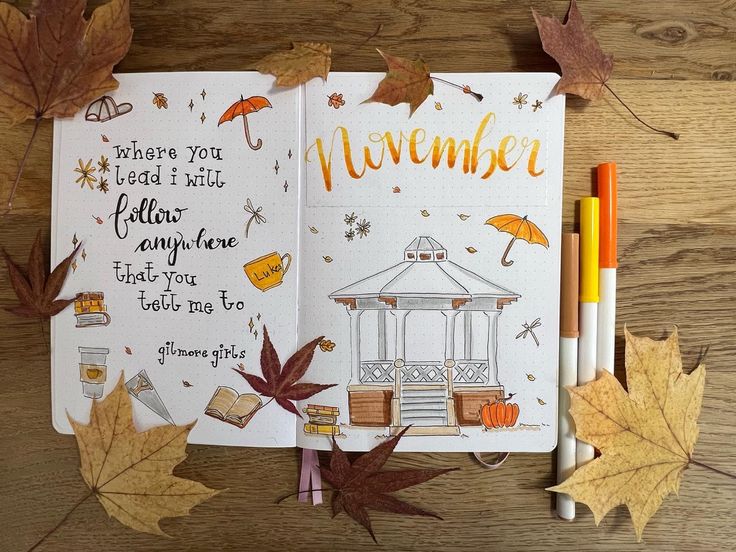 where you
lead i will
follow
anywhere
that you
tell me to
gilmore girls
Luke's
November